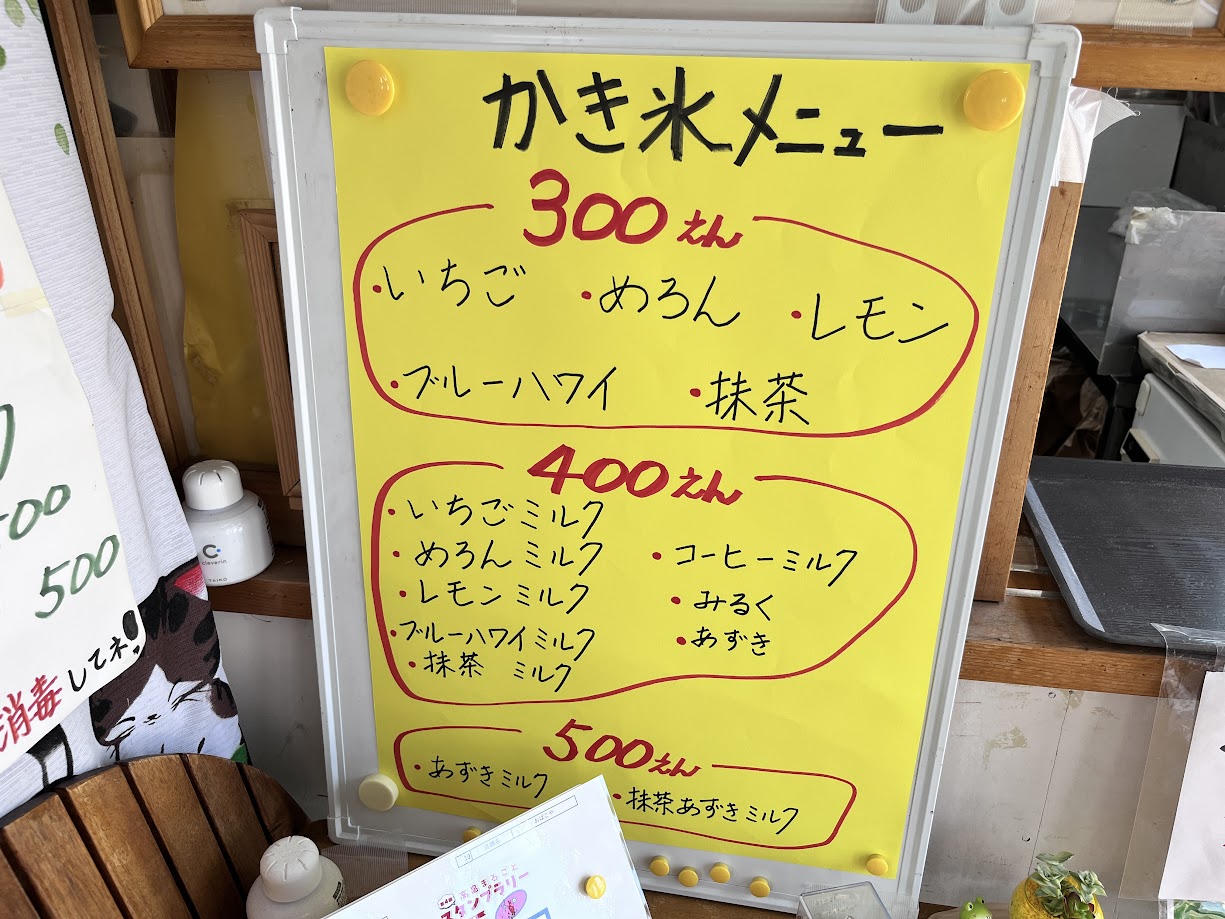 かき氷メニュー
300えん
・いちご ・めろん ・レモン
・ブルーハワイ ・抹茶
400えん
・いちごミルク
・めろんミルク ・コーヒーミルク
・レモンミルク ・みるく
・ブルーハワイミルク ・あずき
・抹茶 ミルク
500えん
・あずきミルク ・抹茶あずきミルク
500
消毒してネ!
cleverin
TAIKO
スタンプラリー